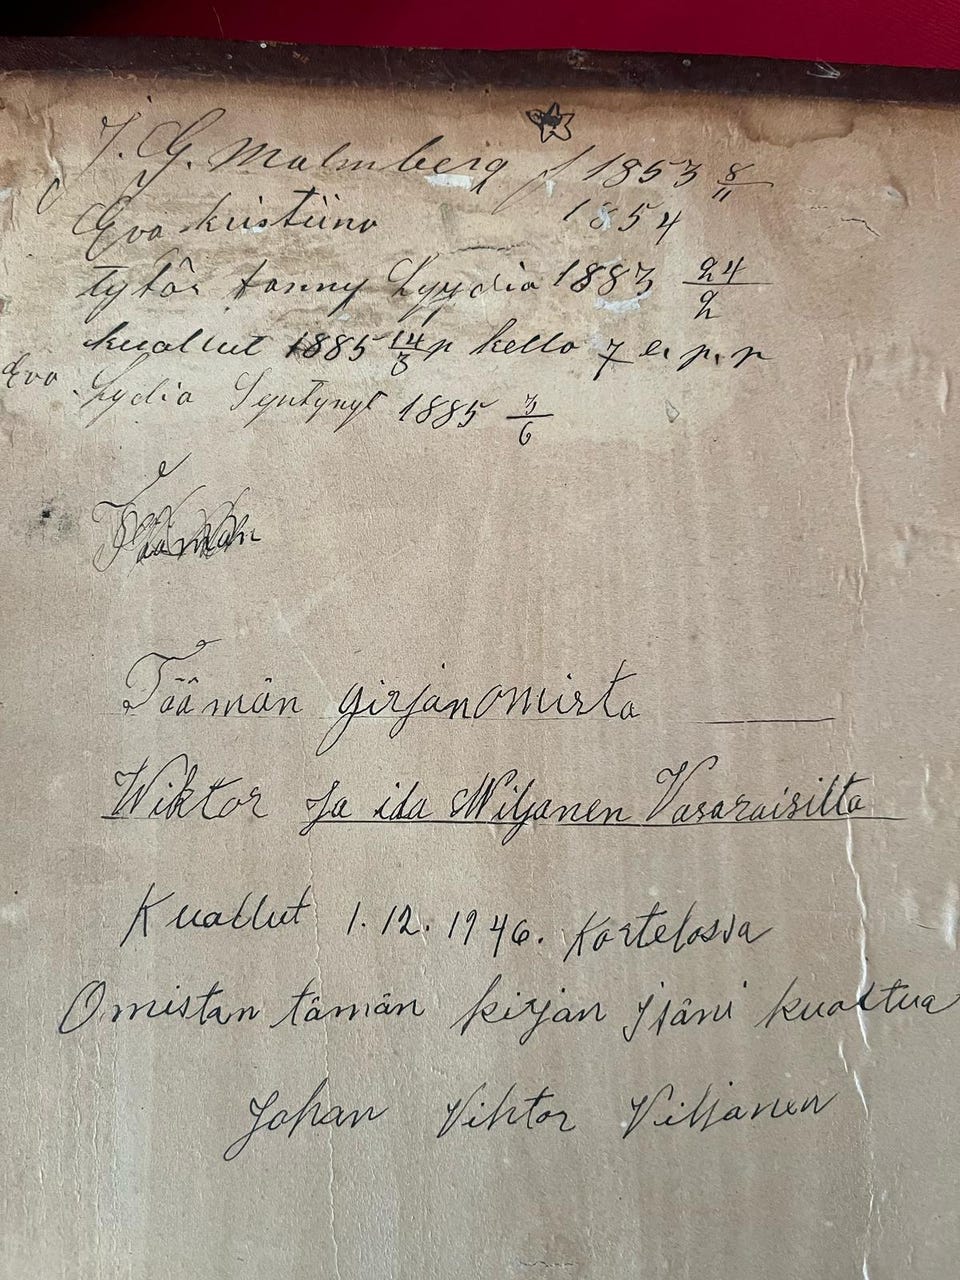 J. G. Malmberg f 1853 8/11
Eva kristiina 1854
tytär Fanny Lyydia 1883 24/2
kuallut 1885 14/3 p kello 7 e. p. p
Eva Lydia Syntynyt 1885 3/6
Täämän
Täämän girjan omista
Wiktor ja ida Wiljanen Vasaraisilta
Kuallut 1.12.1946. Kortelossa
Omistan tämän kirjan Isäni kualtua
Johan Viktor Viljanen